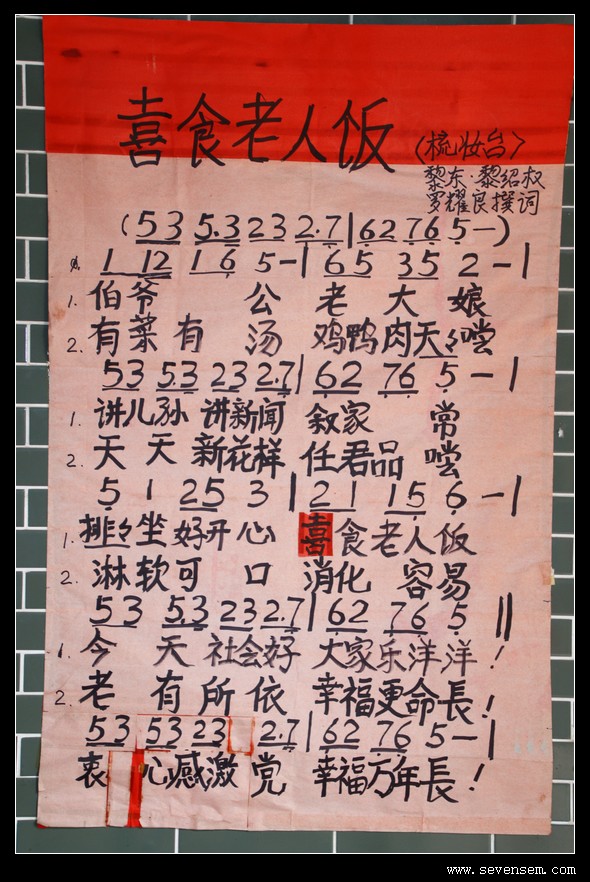 喜食老人饭
(梳妆台)
黎东·黎绍权
罗耀良撰词
(53 5.3 23 2.7|62 76 5-)
1 12 1 6 5-|65 35 2-|
1. 伯爷 公 老 大 娘
2. 有菜 有 汤 鸡鸭肉天々嚐
53 53 23 2.7|62 76 5-|
1. 讲儿孙 讲新闻 叙家 常
2. 天 天 新花样 任君品 嚐
5 1 25 3|21 15 6-|
1. 排々坐 好开心 喜食老人饭
2. 淋软可 口 消化 容易
53 53 23 2.7|62 76 5 ||
1. 今 天 社会好 大家乐洋洋!
2. 老 有所依 幸福更命長!
53 53 23 2.7|62 76 5-|
衷 心感激 党 幸福万年長!
www.sevensem.com